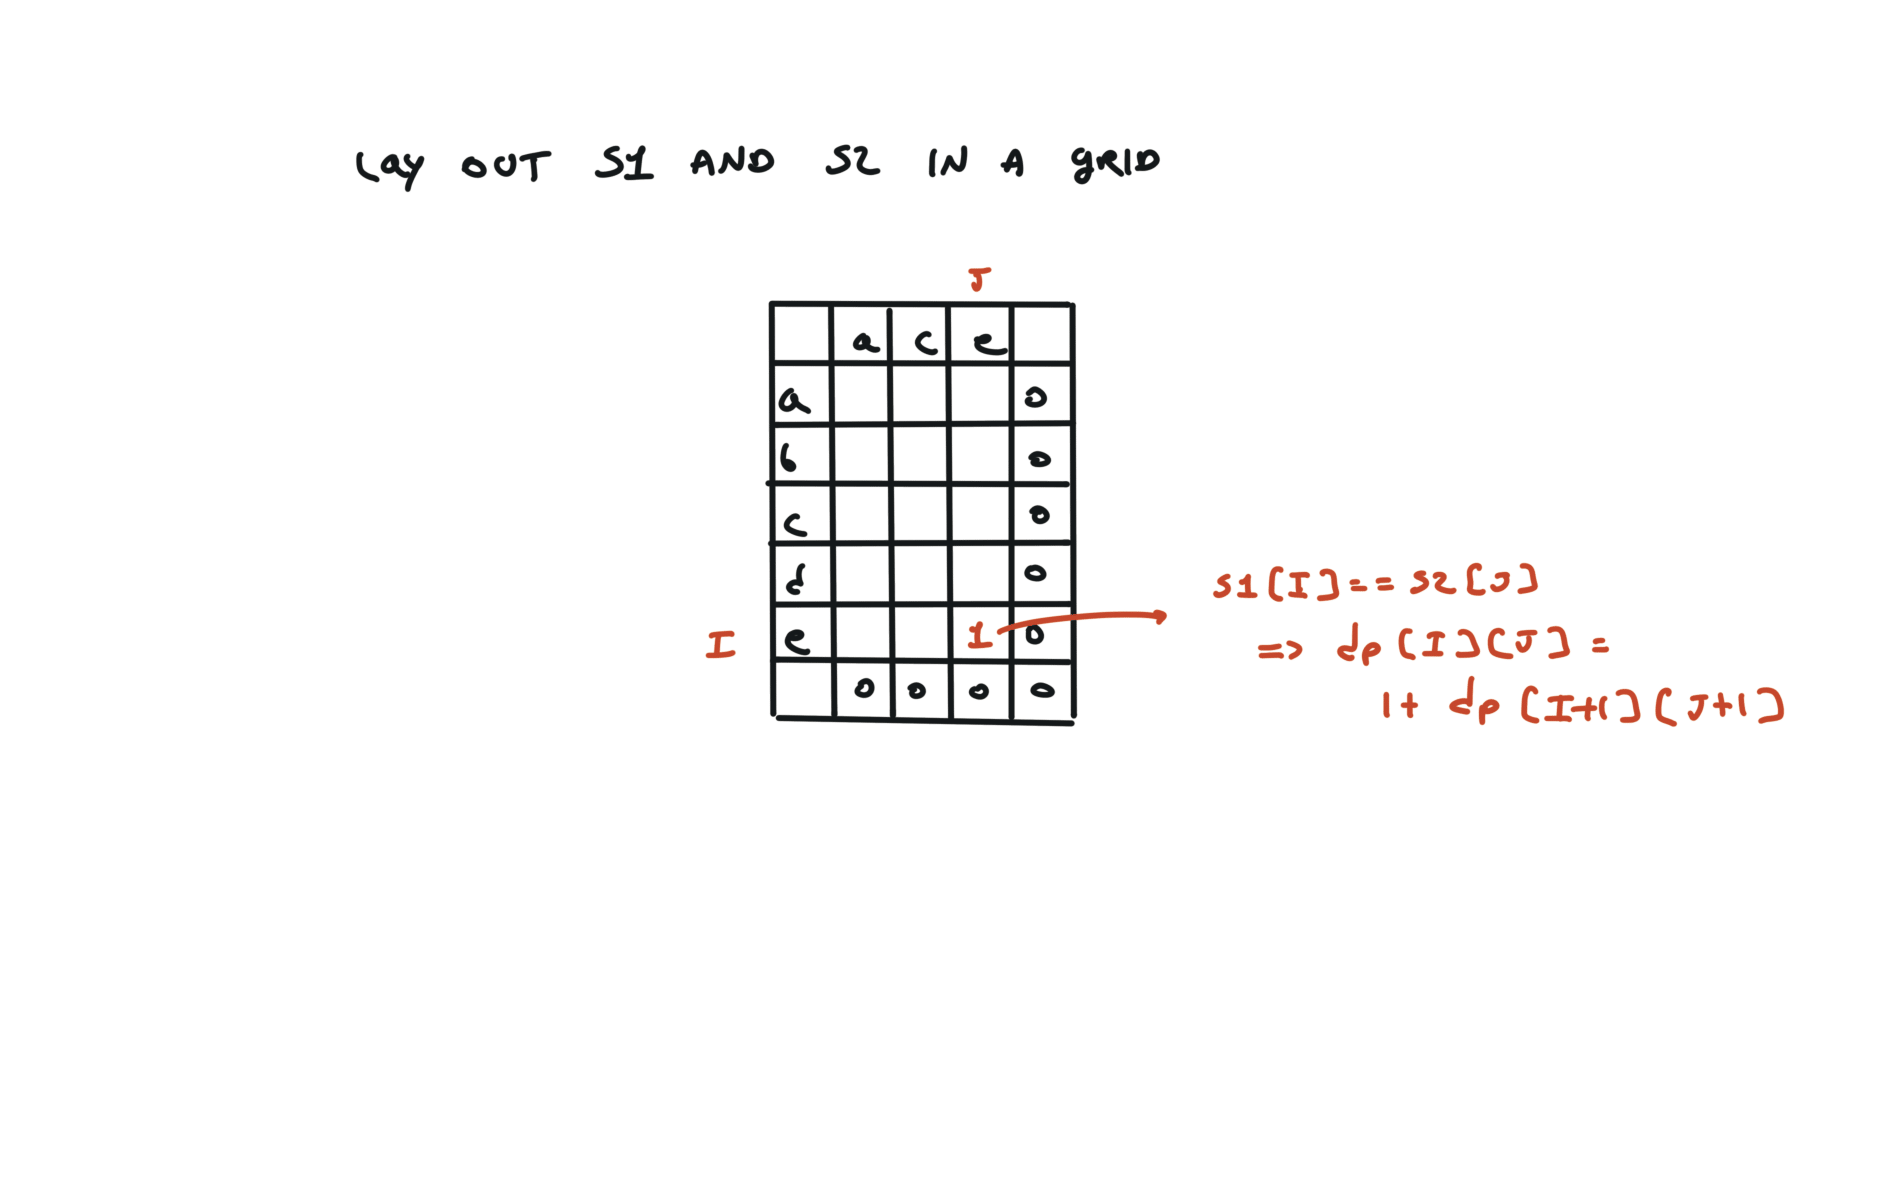 Lay OUT S1 AND S2 IN A gRID
J
a c e
a 0
b 0
c 0
d 0
I e 1 0
0 0 0 0
S1[I] == S2[J]
=> dp[I][J] =
1+ dp[I+1][J+1]